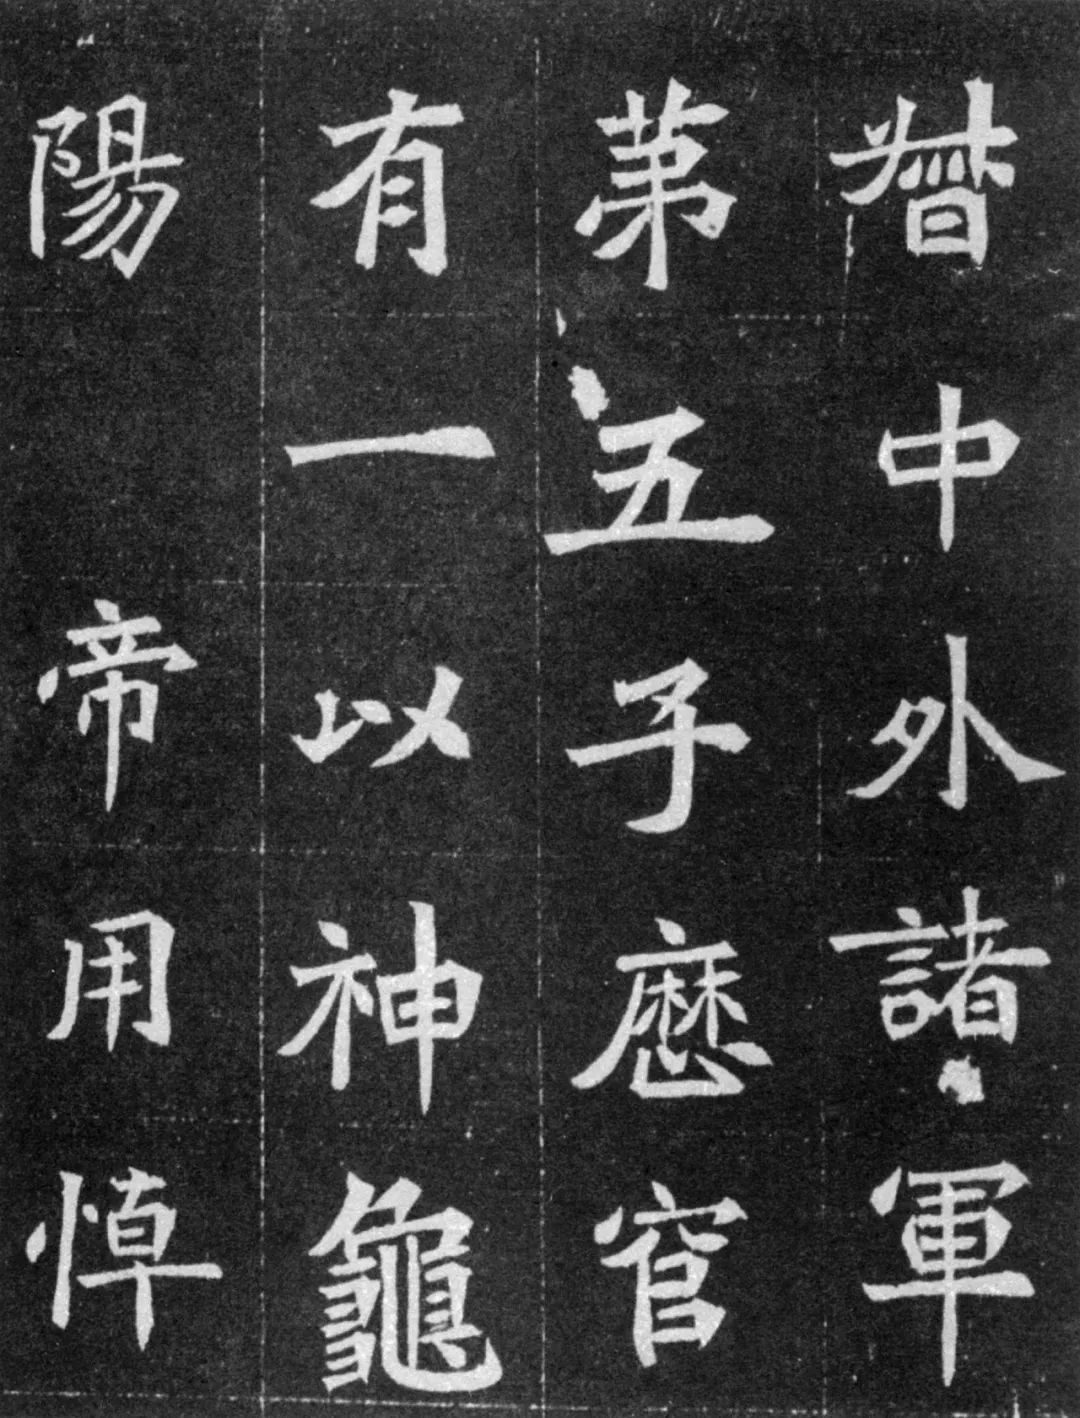 督中外諸軍
苐五子歷官
有一以神龜
陽　帝用悼